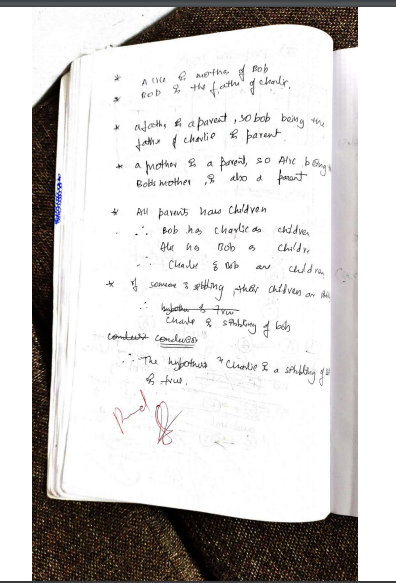 * Alice is mother of Bob
* Bob is the father of charlie.
* a father is a parent, so bob being the
father of charlie is parent
* a mother is a parent, so Alice being
Bob's mother, is also a parent
* All parents have children
∴ Bob has charlie as children
Alice has Bob as childr
∴ Charlie & Bob are children
* if someone is sibling, their children are
∴ hypothes is True
Charlie is sibbling of bob
conclusion
∴ The hypothesis "Charlie is a sibbling of
is true.